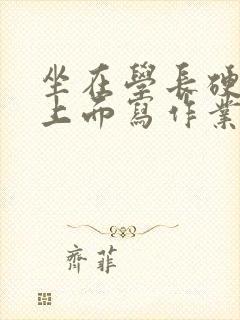 坐在學長硬
上而寫作業
齊菲